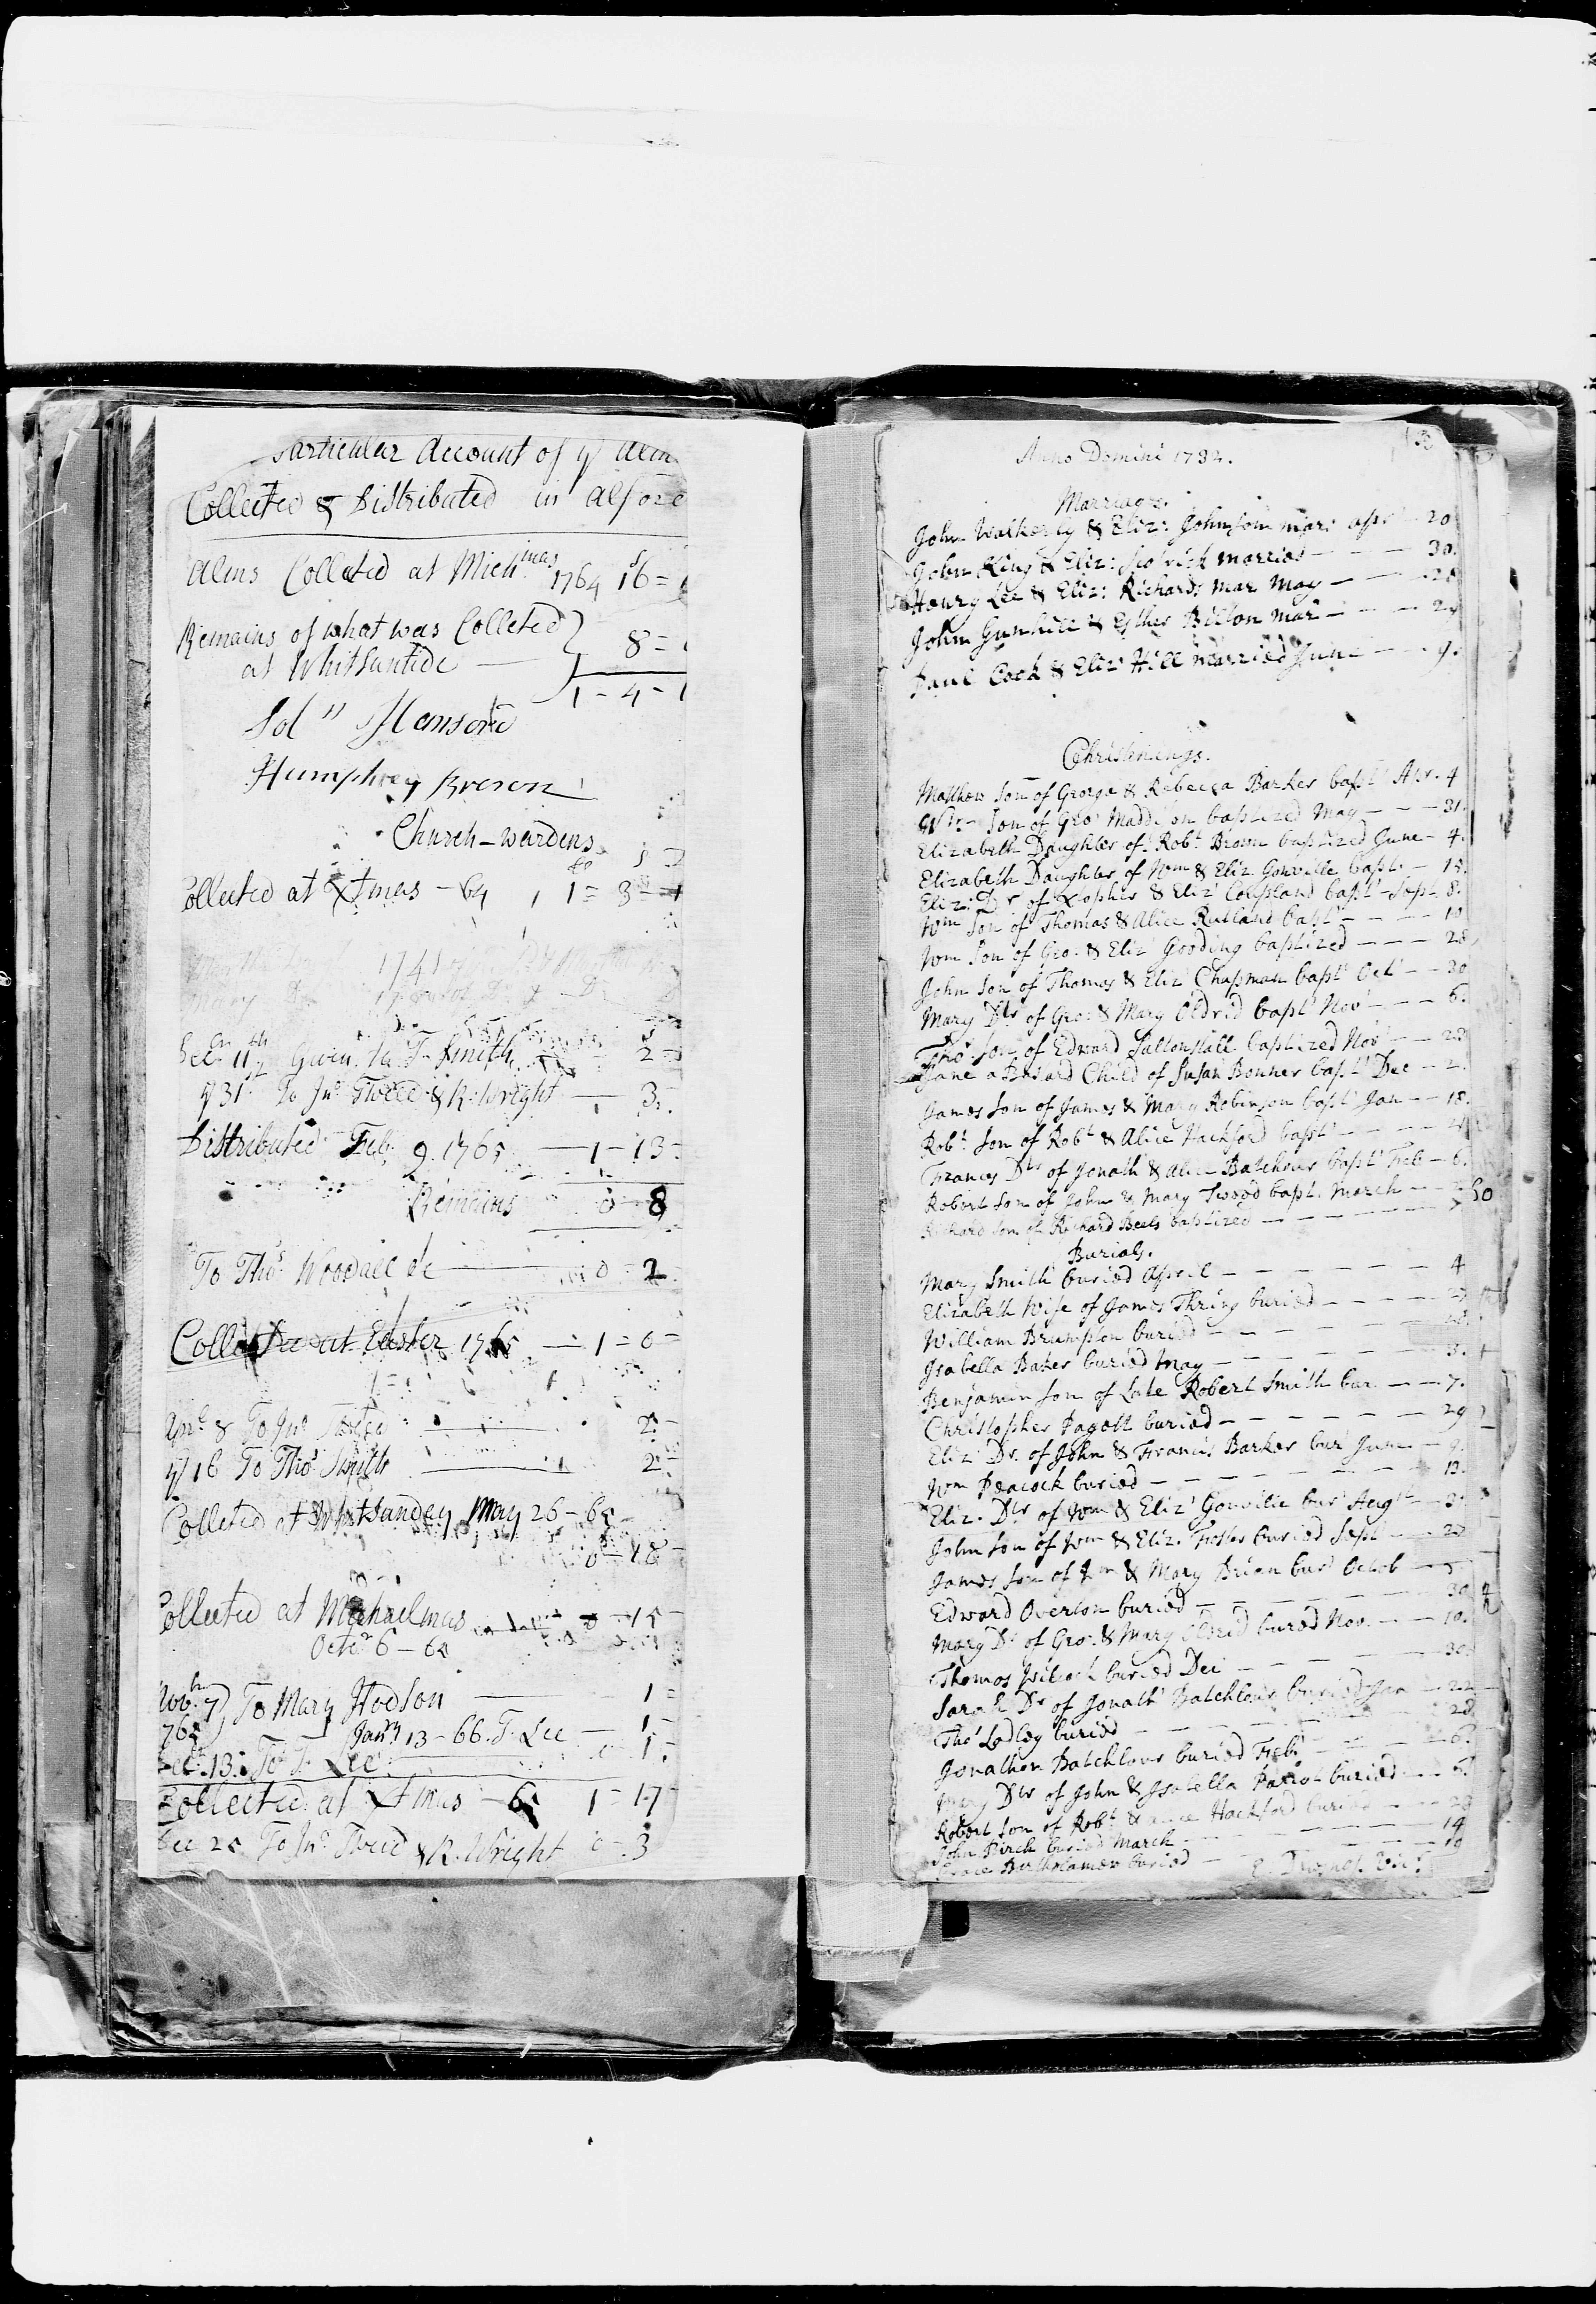 Particular Account of ye Alm
Collected & Distributed in Alfore
Alms Collected at Mich.mas 1764 16 =
Remains of what was Colleted } 8 =
at Whitsuntide —
1 - 4 - 1
Humphrey Brown
Church-wardens
Collected at Xtmas - 64 1 = 3
1741
Mary
Dec. 11th Given to T. Smith 2 -
ye 31 To Jno. Tweed & R. Wright — 3.
Distributed Feb. 9. 1765 — 1 - 13 -
Remains 0 8
To Thos. Woodall &c — 0 - 2
Collected at Easter 1765 — 1 = 0 =
Apr. 8 To Jno. 2 -
ye 16 To Thos. Smith 2 -
Colleted at Whitsunday May 26 - 65
0 - 18 -
Collected at Michaelmas 0 - 15 -
Octr. 6 - 65
Novbr. 7 To Mary Hodson — 1 =
765 Janry 13 - 66. T. Lee — 1 -
Dec. 13. To T. Lee 1.
Collected at Xtmas - 65 1 - 17 -
Dec 25 To Jno. Tweed & R. Wright 0 - 3
Anno Domini 1732.
Marriages.
John Walkerly & Eliz: Johnson mar: apr 20
John King & Eliz: married — 30.
Henry Lee & Eliz: Richards mar May — 28
John Gunhill & Esther Bilton mar — 29
Paul Cock & Eliz' Hill married June — 9.
Christnings.
Matthew Son of George & Rebecca Barker bapt' Apr. 4
Wm Son of Geo' Maddison baptized May — 31.
Elizabeth Daughter of Robt Brown baptized June — 4.
Elizabeth Daughter of Wm & Eliz Gonville bapt. — 15.
Eliz: Dr of Xopher & Eliz' Coupland bapt' Sept. 8.
Wm Son of Thomas & Alice Rutland bapt' — 10
Wm Son of Geo. & Eliz' Gooding baptized — 28
John Son of Thomas & Eliz Chapman bapt' Oct' — 30
Mary Dtr of Geo: & Mary Oldrid bapt' Nov' — 6.
Tho' Son of Edward Saltonstall baptized Nov' — 23
Jane a Bastard Child of Susan Bonner bapt' Dec — 2.
James Son of James & Mary Robinson bapt' Jan — 18.
Robt Son of Robt & Alice Hackford bapt'
Frances Dtr of Jonath' & Alice Batchlour bapt' Feb — 6.
Robert Son of John & Mary Tweed bapt. March
Richard Son of Richard Beels baptized
Burials.
Mary Smith buried April — 4
Elizabeth Wife of James Thring buried — 27
William Brumpton buried
Isabella Baker buried May — 3.
Benjamin Son of Late Robert Smith bur. — 7.
Christopher Pagott buried — 29
Eliz Dr. of John & Francis Barker bur' June — 9.
Wm Peacock buried — 13.
Eliz. Dtr of Wm & Eliz' Gonville bur' Augt — 3.
John Son of Wm & Eliz. Foster buried Sept — 23
James Son of Wm & Mary Brian bur' Octob — 5.
Edward Overton buried — 30
Mary Dr of Geo. & Mary Oldrid bured Nov. — 10.
Thomas buried Dec — 30.
Sarah Dr of Jonath' Batchlour buried Jan — 22
Tho' Ladley buried — 28
Jonathan Batchlour buried Feb. — 6.
Mary Dtr of John & Isabella Parrot buried — 6.
Robert Son of Robt & Alice Hackford buried — 28
John Birch buried March — 14
Bartholamew buried — 19